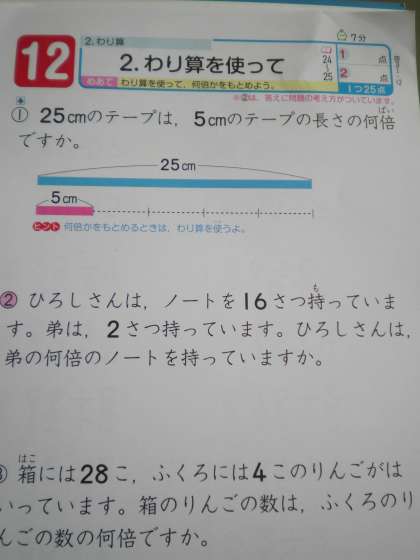 2. わり算
12
2. わり算を使って
めあて わり算を使って、何倍かをもとめよう。
7分
24
25
1 点
2 点
1つ25点
※②は、答えに問題の考え方がついています。
① 25cmのテープは，5cmのテープの長さの何倍
ばい
ですか。
25cm
5cm
ヒント 何倍かをもとめるときは、わり算を使うよ。
② ひろしさんは，ノートを16さつ持っていま
も
す。弟は，2さつ持っています。ひろしさんは，
弟の何倍のノートを持っていますか。
はこ
箱には28こ，ふくろには4このりんごがは
いっています。箱のりんごの数は，ふくろのり
んごの数の何倍ですか。